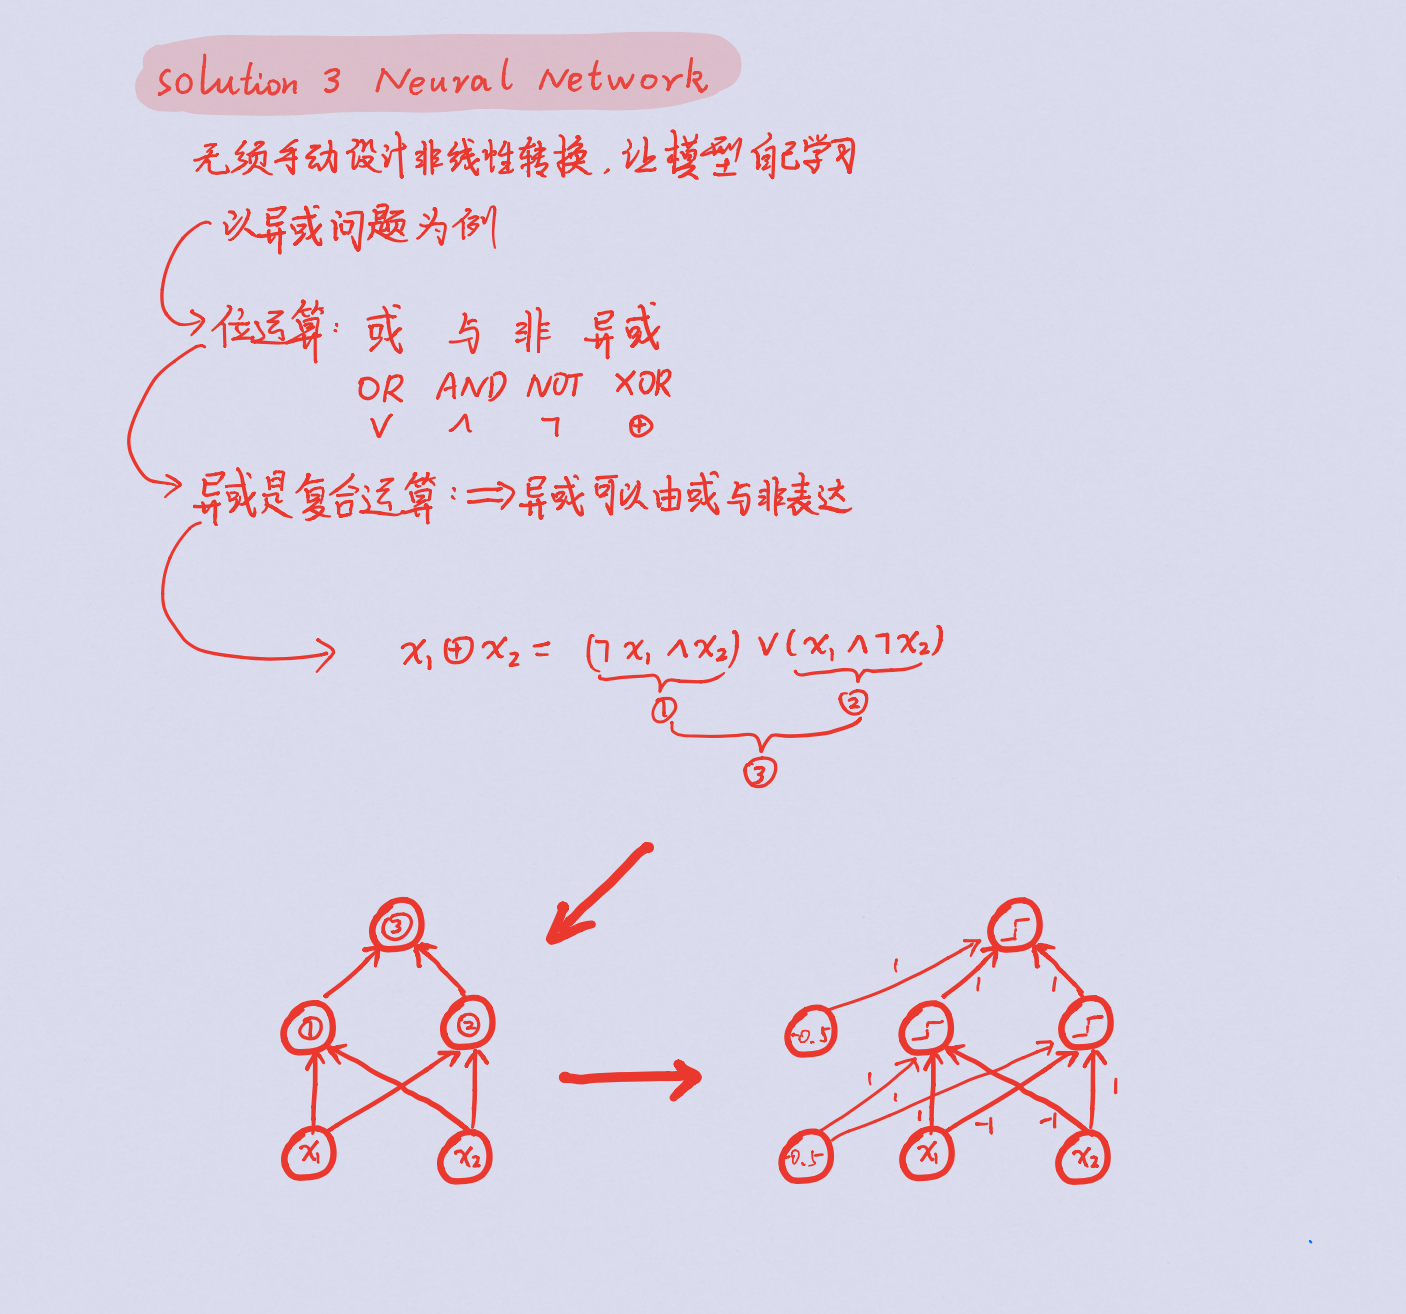 Solution 3 Neural Network
无须手动设计非线性转换，让模型自己学习
以异或问题为例
位运算：或 与 非 异或
OR AND NOT XOR
∨ ∧ ¬ ⊕
异或是复合运算：⇒异或可以由或与非表达
x₁⊕x₂ = (¬x₁∧x₂)∨(x₁∧¬x₂)
① ②
③
③
① ②
x₁ x₂
1 1 1
-0.5
1 1 1 -1 -1 1
-0.5 x₁ x₂